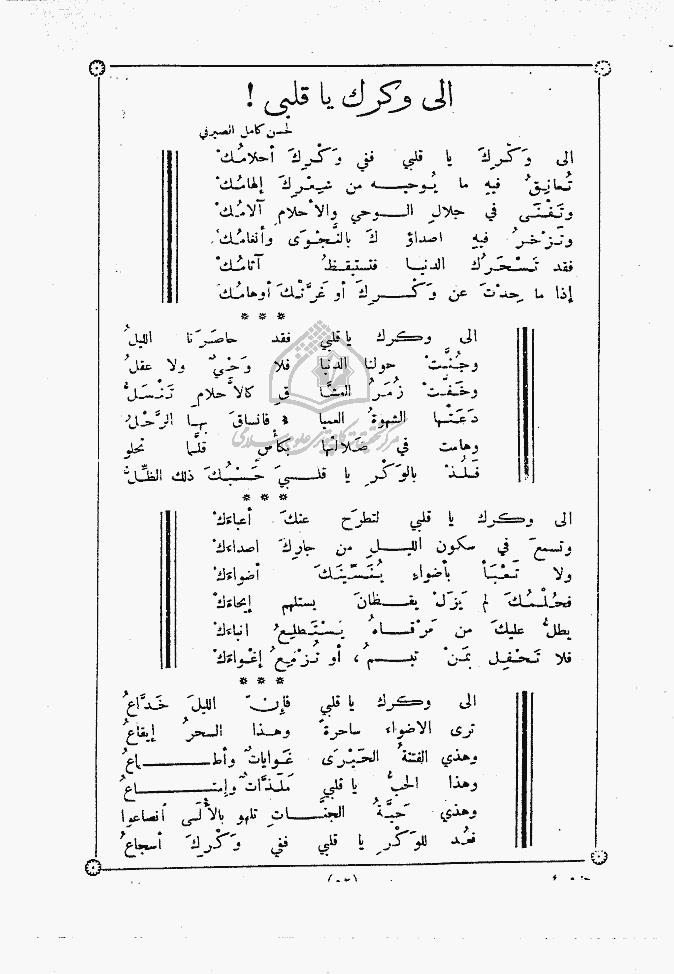 الى وكرك يا قلبي !
لحسن كامل الصيرفي
الى وَكْرِكَ يا قلبي ففي وكْرِكَ أحلامُكْ
تُعانِقُ فيهِ ما يُوحيـه من شِعْرِكَ إلهامُكْ
وتَفْنَى في جلالِ الوحي والأحلامِ آلامُكْ
وتَزْخرُ فيهِ اصداؤكَ بالنَّجْوَى وأنغامُكْ
فقد تَسْحَرُك الدنيا فتستيقظُ آثامُكْ
إذا ما حِدْتَ عن وَكْرِكَ أو غَرَّتْكَ أوهامُكْ
* * *
الى وكرك يا قلبي فقد حاصَرَنا الليلُ
وجُنَّتْ حولنا الدنيا فلا وَحْيٌ ولا عقلُ
وخَفَّتْ زُمَرُ العشَّاقِ كالأحلامِ تَنْسَلُّ
دَعَتْها الشهوةُ العميا ء فانساقَ بها الرَّحْلُ
وهامت في ضلالتها بكأسٍ قلَّما تحلو
فَلُذْ بالوَكْرِ يا قلـبي حَسْبُكَ ذلك الظِّلُّ
* * *
الى وكرك يا قلبي لتطرَح عنكَ أعباءَكْ
وتسمعَ في سكون الليلِ من جارِكَ اصداءَكْ
ولا تَعْبَأْ بأضواءٍ يُنَسِّينَكَ أضواءَكْ
فحُلْمُكَ لم يَزَلْ يقظانَ يستلهم إيحاءَكْ
يطلُّ عليكَ من مَرْقاهُ يَسْتَطلِعُ انباءَكْ
فلا تَحْفِل بمَنْ تبسمُ، أو تُزْمِعُ إغْواءَكْ
* * *
الى وكرك يا قلبي فإنَّ الليلَ خَدَّاعُ
ترى الاضواء ساحرةً وهـذا السحرُ إيقاعُ
وهذي الفتنةُ الحَيْرَى غَوَاياتٌ وأطـماعُ
وهذا الحبُّ يا قلبي مَلَذَّاتٌ وإمتـاعُ
وهذي حَيَّةُ الجنَّـاتِ تلهو بالأُلَى أنصاعوا
فعُد للوَكْرِ يا قلبي ففي وَكْرِكَ أسجاعُ